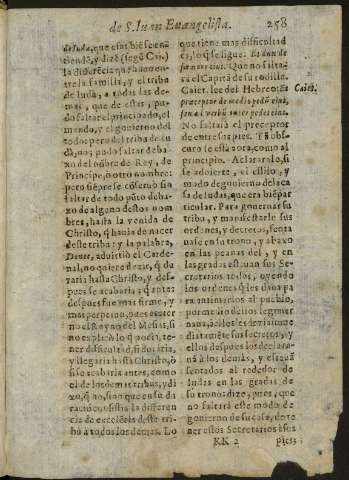 de S. Iuan Euangelista. 258
de Iuda, que està biẽ se en-
tiende, y dize (segũ Cai.)
la diferẽcia que ay en-
tre la familia, y la tribu
de Iuda, a todas las de-
mas, que de estas, pu-
do faltar el principado, el
mando, y el gouierno del
todo: pero del tribu de Iu-
dà, no; no pudo faltar deba-
xo del nõbre de Rey, de
Principe, ò otro nombre:
pero siẽpre se cõseruò sin
faltar de todo pũto deba-
xo de alguno destos nom
bres, hasta la venida de
Christo, q̃ hauia de nacer
deste tribu: y la palabra,
Donec, aduirtiò el Carde-
nal, no quiere dezir, q̃ du-
raria hasta Christo, y des-
pues se acabaria; q̃ antes
despues fue mas firme, y
mas perpetuo,
no el Reyno del Mesias, si
no explicò lo q̃ podia te-
ner dificultad, si duraria,
y llegaria hasta Christo, ò
si se acabaria antes, como
el de los demas tribus, y di
xo, q̃ no, sino que en su du
raciõ cõsistia la diferen
cia de excelẽcia deste tri-
bu à todos los demas. Lo
que tiene mas dificultad
es, lo que se sigue: Et dux de
femore eius. Que no falta-
rà el Capitã de su rodilla.
Caiet. lee del Hebreo: Et Caiet.
praeceptor de medio pedũ eius,
siue à verbũ inter pedes eius.
No faltarà el preceptor
de entre sus pies. Tã obscu-
ro se està aora, como al
principio. Aclararalo, si
se aduierte, el estilo, y
modo de gouierno de la ca
sa de Iudas, que era biẽ par
ticular. Para gouernar su
tribu, y manifestarle sus
ordenes, y decretos, senta
uase en su trono, y abaxo
en las peanas del, y en
las gradas estauan sus Se-
cretarios todos, oyendo
los ordenes q̃ les daua pa
ra intimarlos al pueblo,
por medio de los legitimos
mas, a ellos les
diatamẽte sus secretos, y
ellos despues los declara-
uã à los demàs, y estauã
sentados al rededor de
Iudas en las gradas de
su trono: dize, pues, que
no faltarà este modo de
gouierno de su casa, de te
ner estos Secretarios à sus
KK 2 pies: